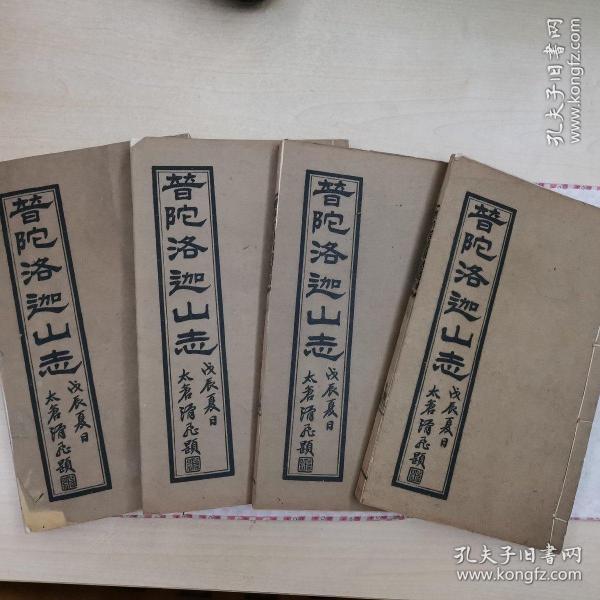 普陀洛迦山志
戊辰夏日
太倉清飛題
普陀洛迦山志
戊辰夏日
太倉清飛題
普陀洛迦山志
戊辰夏日
太倉清飛題
普陀洛迦山志
戊辰夏日
太倉清飛題
孔夫子旧书网
www.kongfz.com
孔夫子旧书网
www.kongfz.com